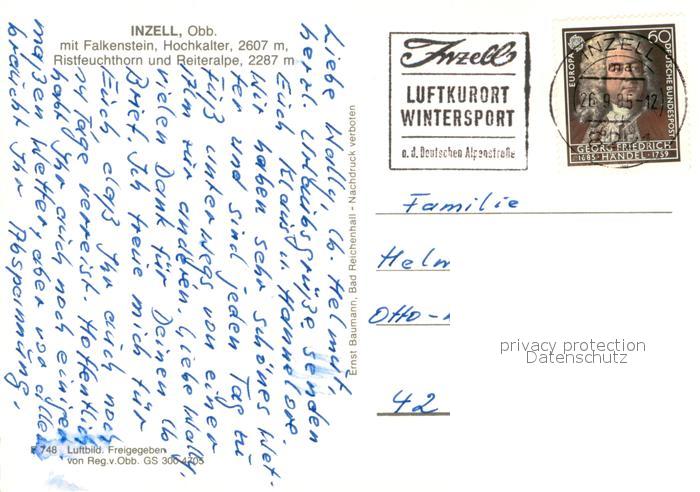 INZELL, Obb.
mit Falkenstein, Hochkalter, 2607 m,
Ristfeuchthorn und Reiteralpe, 2287 m
Liebe Wally, lb. Helmut,
herzl. Urlaubsgrüße senden
Euch Klaus u. Hannelore.
Wir haben sehr schönes Wet-
ter und sind jeden Tag zu
Fuß unterwegs von einer
Alm zur anderen. Liebe Wally,
vielen Dank für Deinen lb
Brief. Ich freue mich für
Euch daß Ihr auch noch
14 Tage verreist. Hoffentlich
habt Ihr auch noch einiger
maßen Wetter, aber vor allem
braucht Ihr Abspannung.
748 Luftbild. Freigegeben
von Reg.v.Obb. GS 300 4705
Ernst Baumann, Bad Reichenhall - Nachdruck verboten
Inzell
LUFTKURORT
WINTERSPORT
a.d. Deutschen Alpenstraße
INZELL
26.9.85-12
EUROPA
60
DEUTSCHE BUNDESPOST
GEORG FRIEDRICH
1685 HÄNDEL 1759
Familie
Helm
Otto-
42
privacy protection
Datenschutz